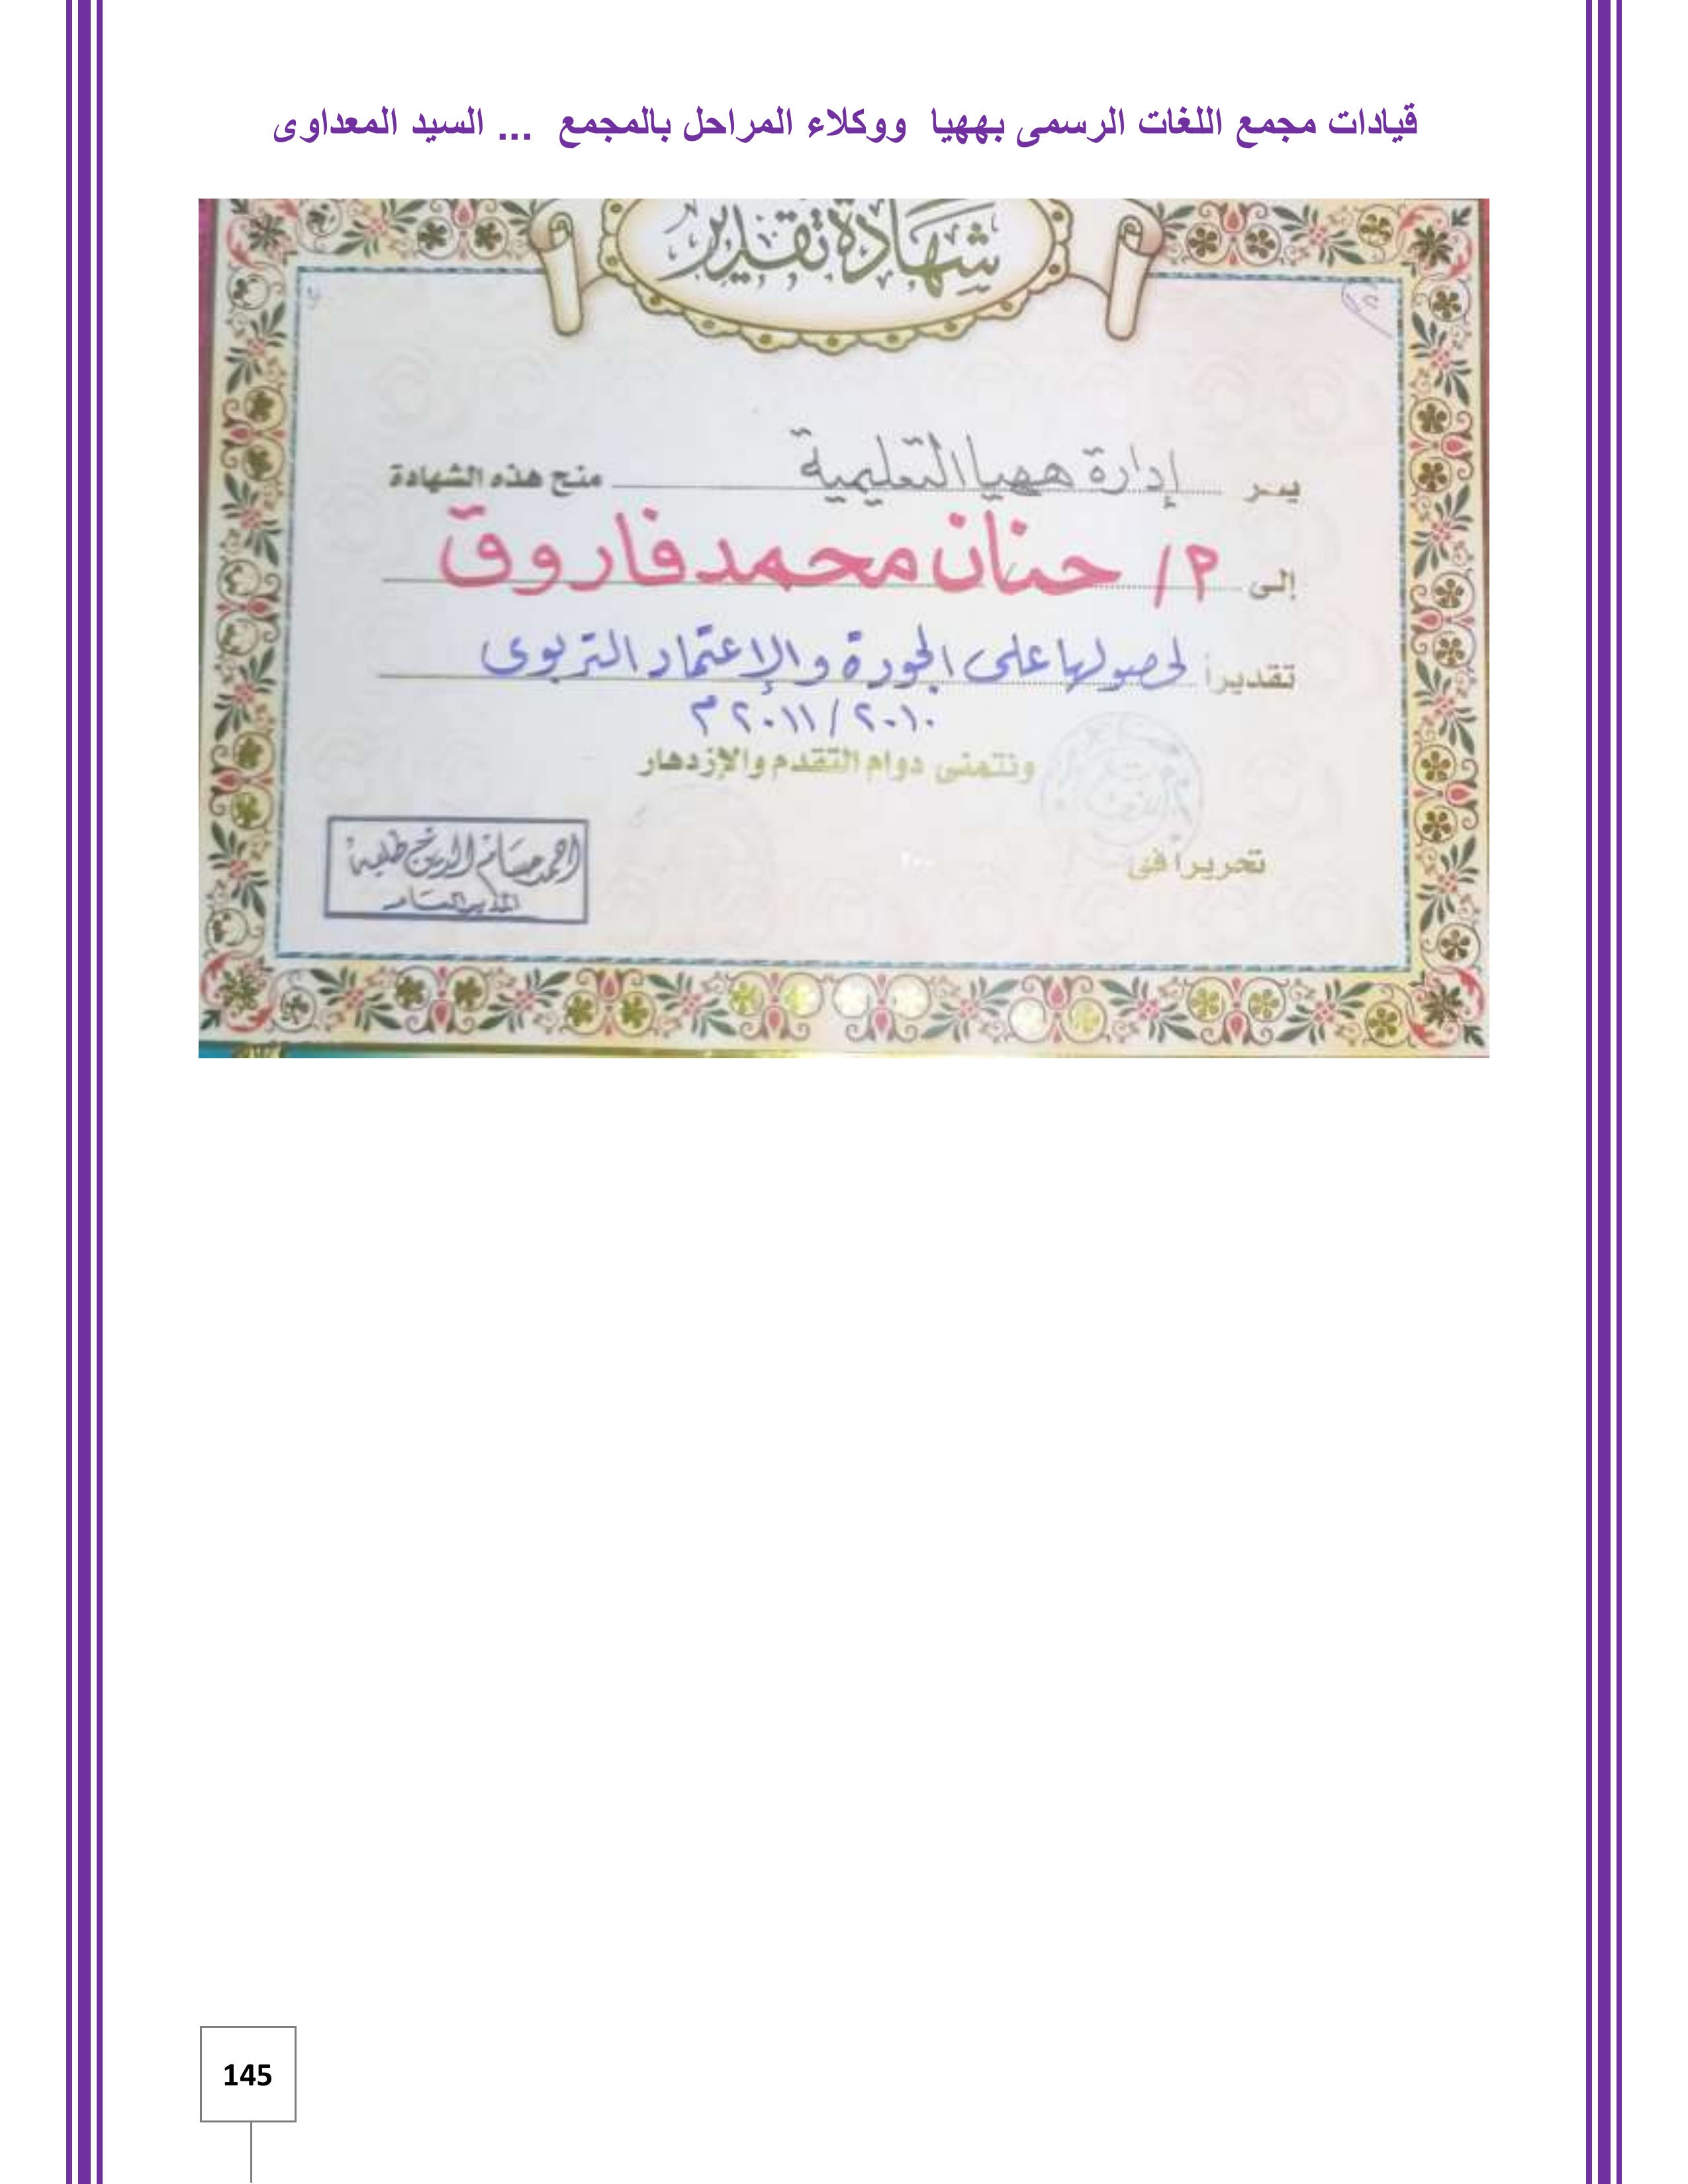 قيادات مجمع اللغات الرسمى بههيا ووكلاء المراحل بالمجمع ... السيد المعداوى
شهادة تقدير
يسر إدارة ههيا التعليمية منح هذه الشهادة
إلى م/ حنان محمد فاروق
تقديراً لحصولها على الجودة والإعتماد التربوى
٢٠١٠ / ٢٠١١ م
ونتمنى دوام التقدم والإزدهار
تحريراً فى
المدير العام
145